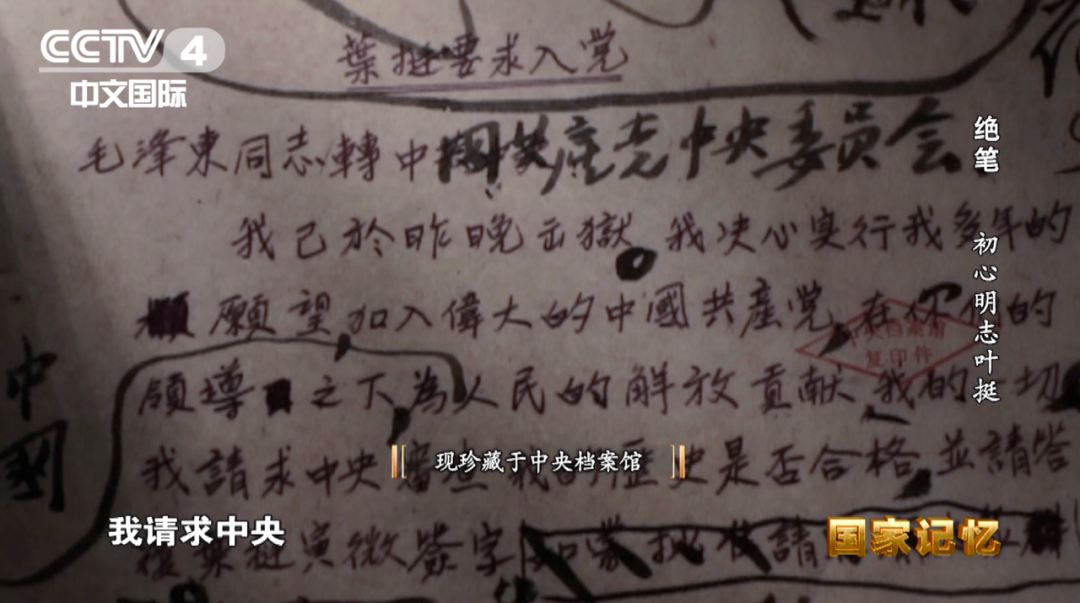 CCTV 4
中文国际
葉挺要求入党
毛澤東同志轉中國共產党中央委員会
我已於昨晚出獄，我决心实行我多年的
願望，加入偉大的中國共產党，在你们的
領導之下，為人民的解放貢献我的一切
我請求中央審查我的歷史是否合格，並請答
葉挺寅微簽字
請
中國
中央档案馆
复印件
绝笔 初心明志叶挺
现珍藏于中央档案馆
我请求中央
国家记忆